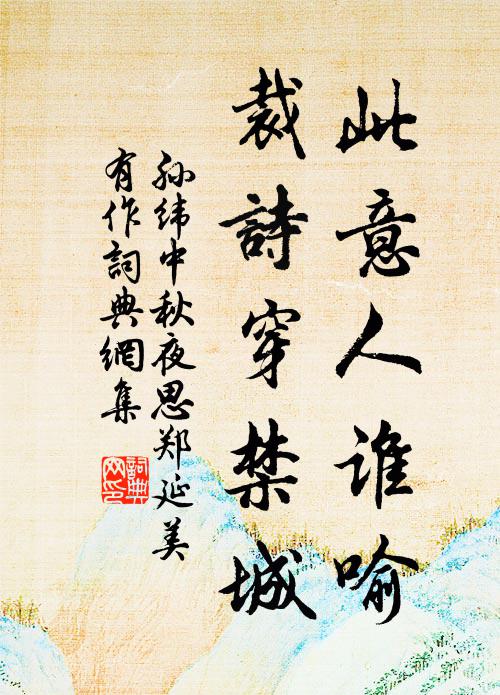 此意人谁喻
裁詩穿禁城
孙纬中秋夜思郑延美
有作詞典網集
詞典网印